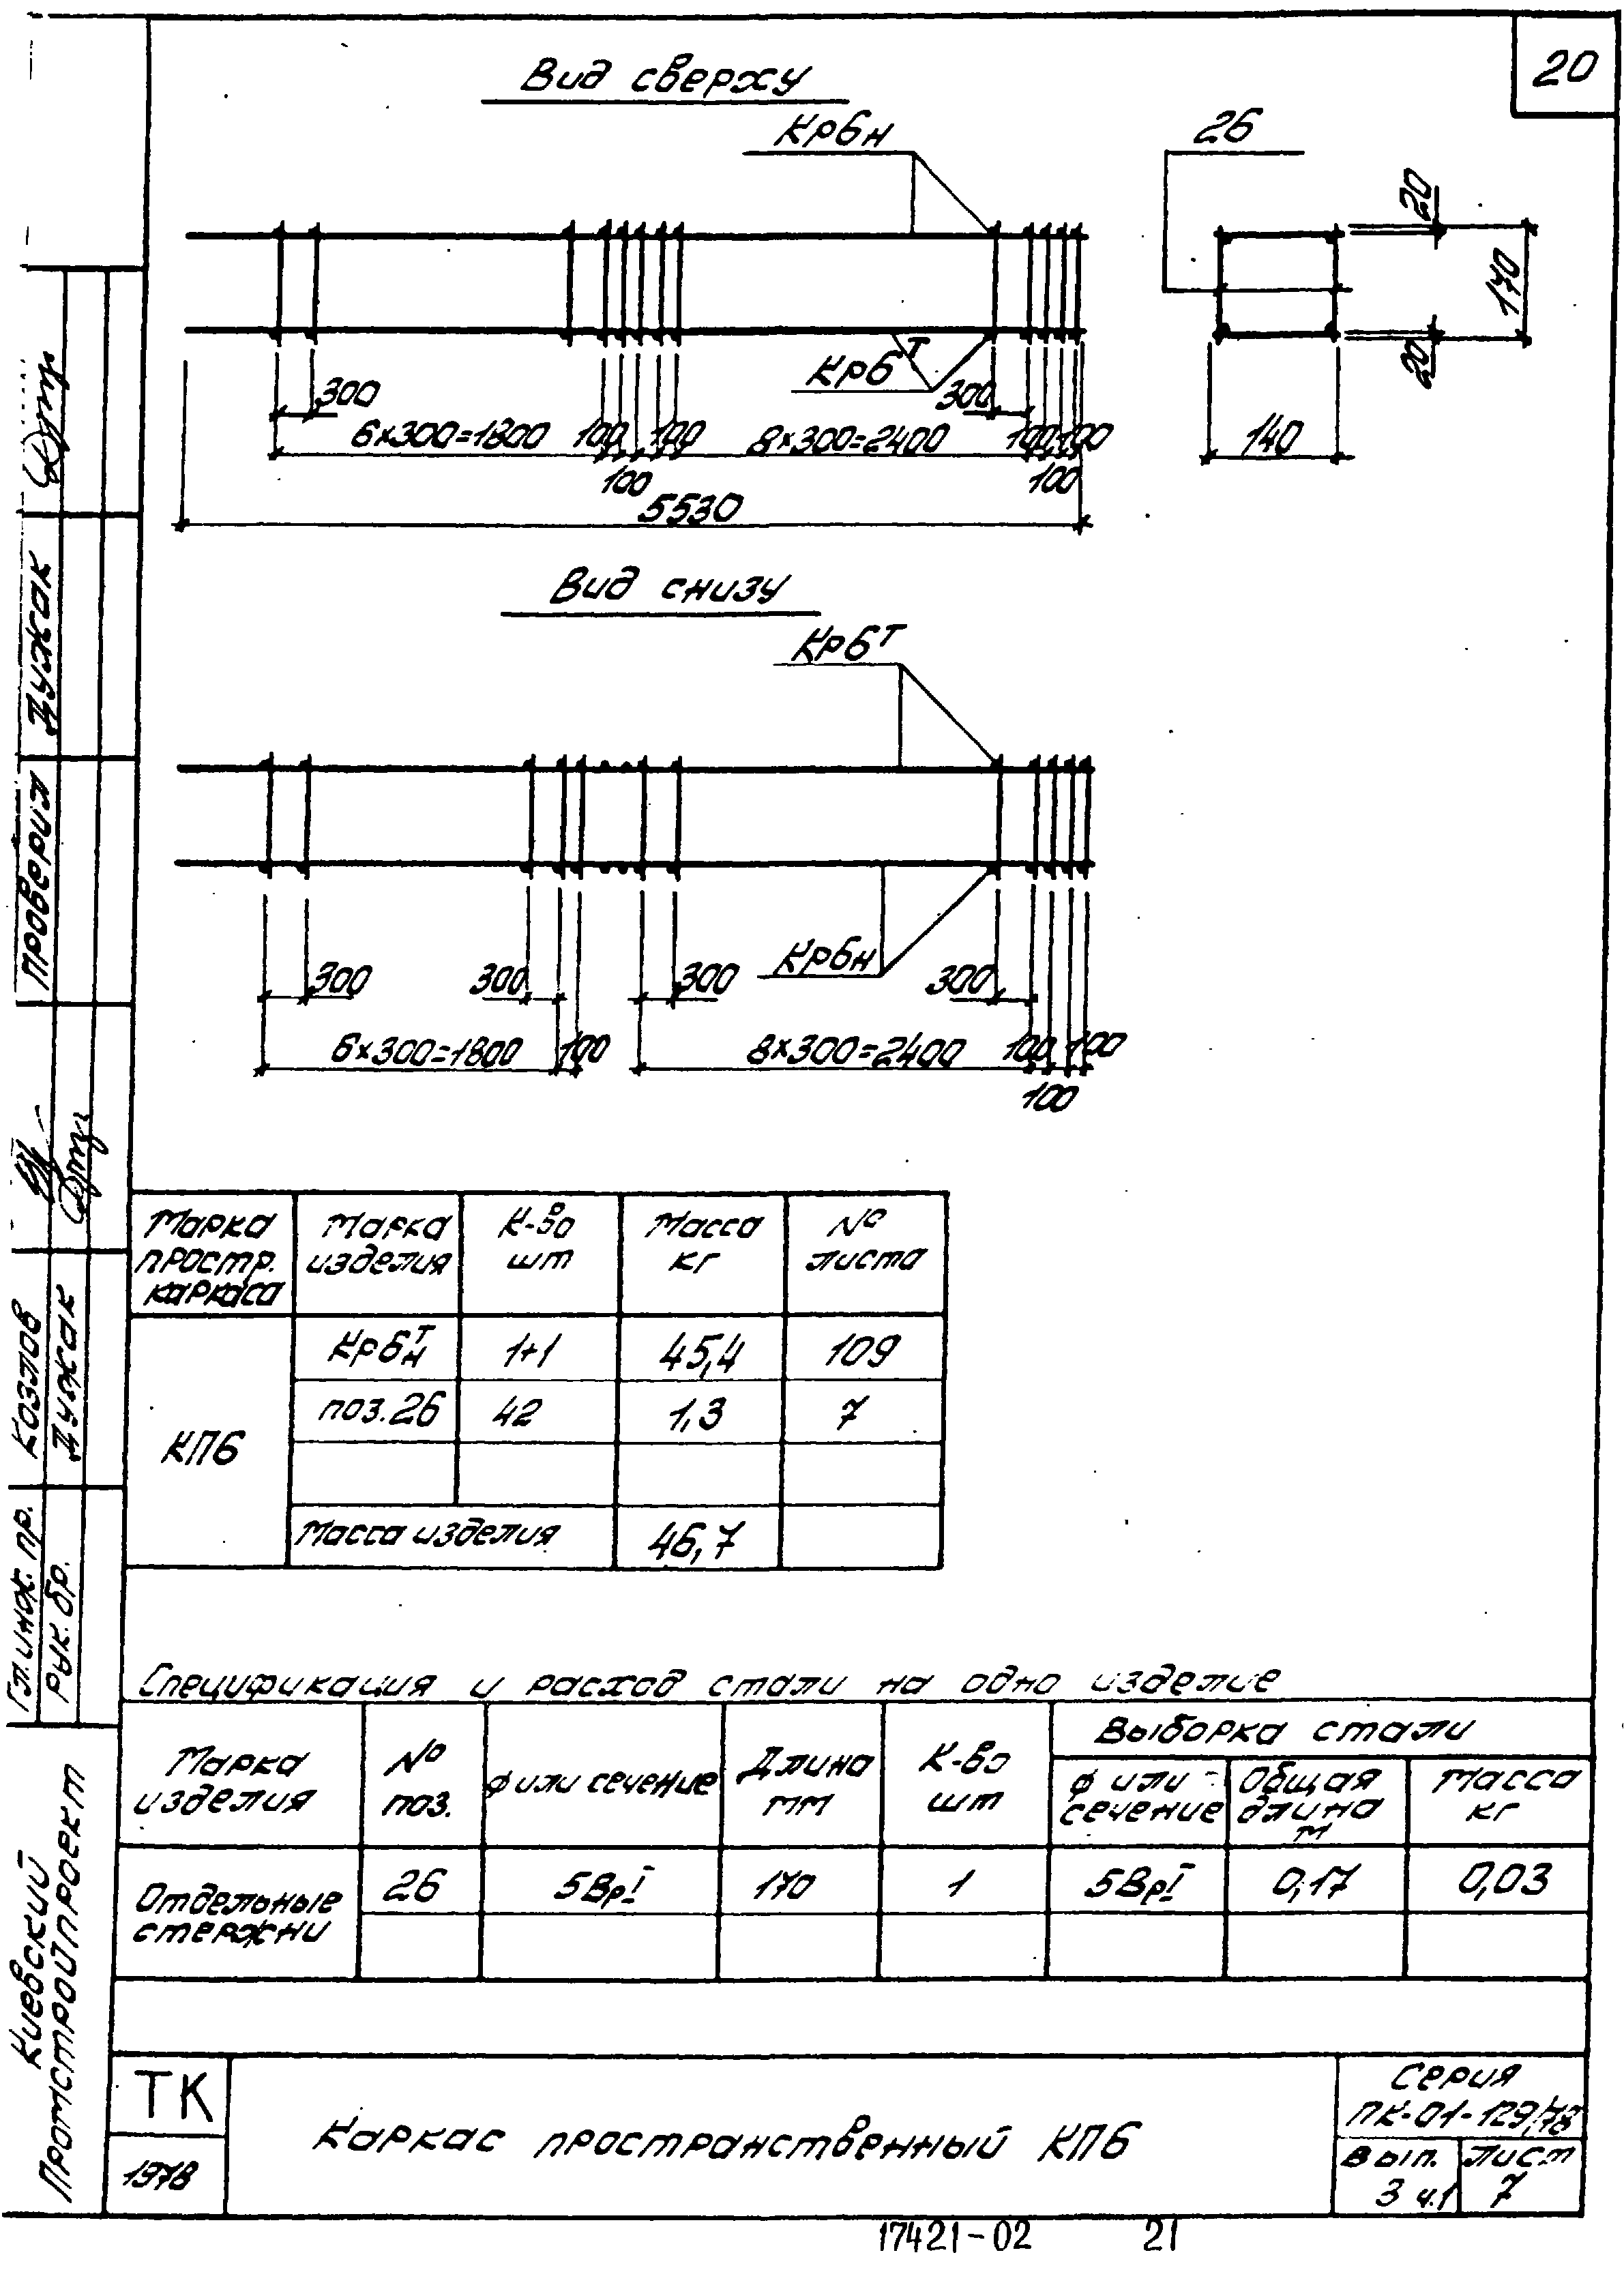 20
Вид сверху
Кр6н
26
20
170
20
140
Кр6т
300
300
6×300=1800
100
100
8×300=2400
100
100
100
100
5530
Вид снизу
Кр6т
Кр6н
300
300
300
300
6×300=1800
100
8×300=2400
100
100
100
Марка простр. каркаса
Марка изделия
К-во шт
Масса кг
№ листа
КП6
Кр6тн
1+1
45,4
109
поз.26
42
1,3
7
Масса изделия
46,7
Спецификация и расход стали на одно изделие
Марка изделия
№ поз.
ф или сечение
Длина мм
К-во шт
Выборка стали
ф или сечение
Общая длина м
Масса кг
Отдельные стержни
26
5ВрI
170
1
5ВрI
0,17
0,03
ТК
1978
Каркас пространственный КП6
Серия
ПК-01-129/78
Вып.
3 ч.1
лист
7
17421-02
21
Проверил
Дужак
Гл. инж. пр.
Козлов
Рук. бр.
Дужак
Киевский
Промстройпроект